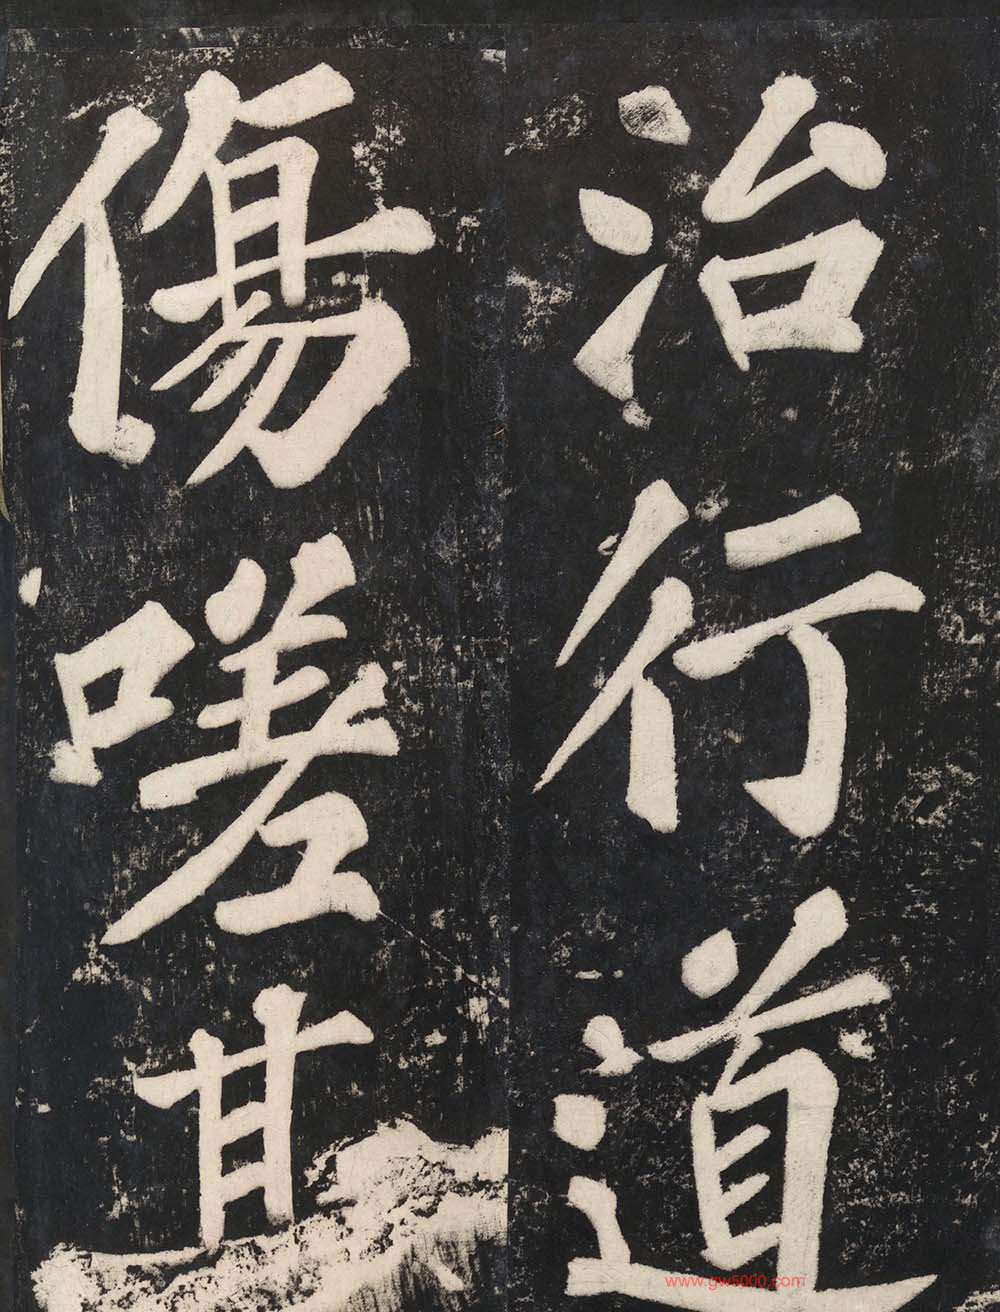 治行道
傷嗟甚
www.gw5000.com